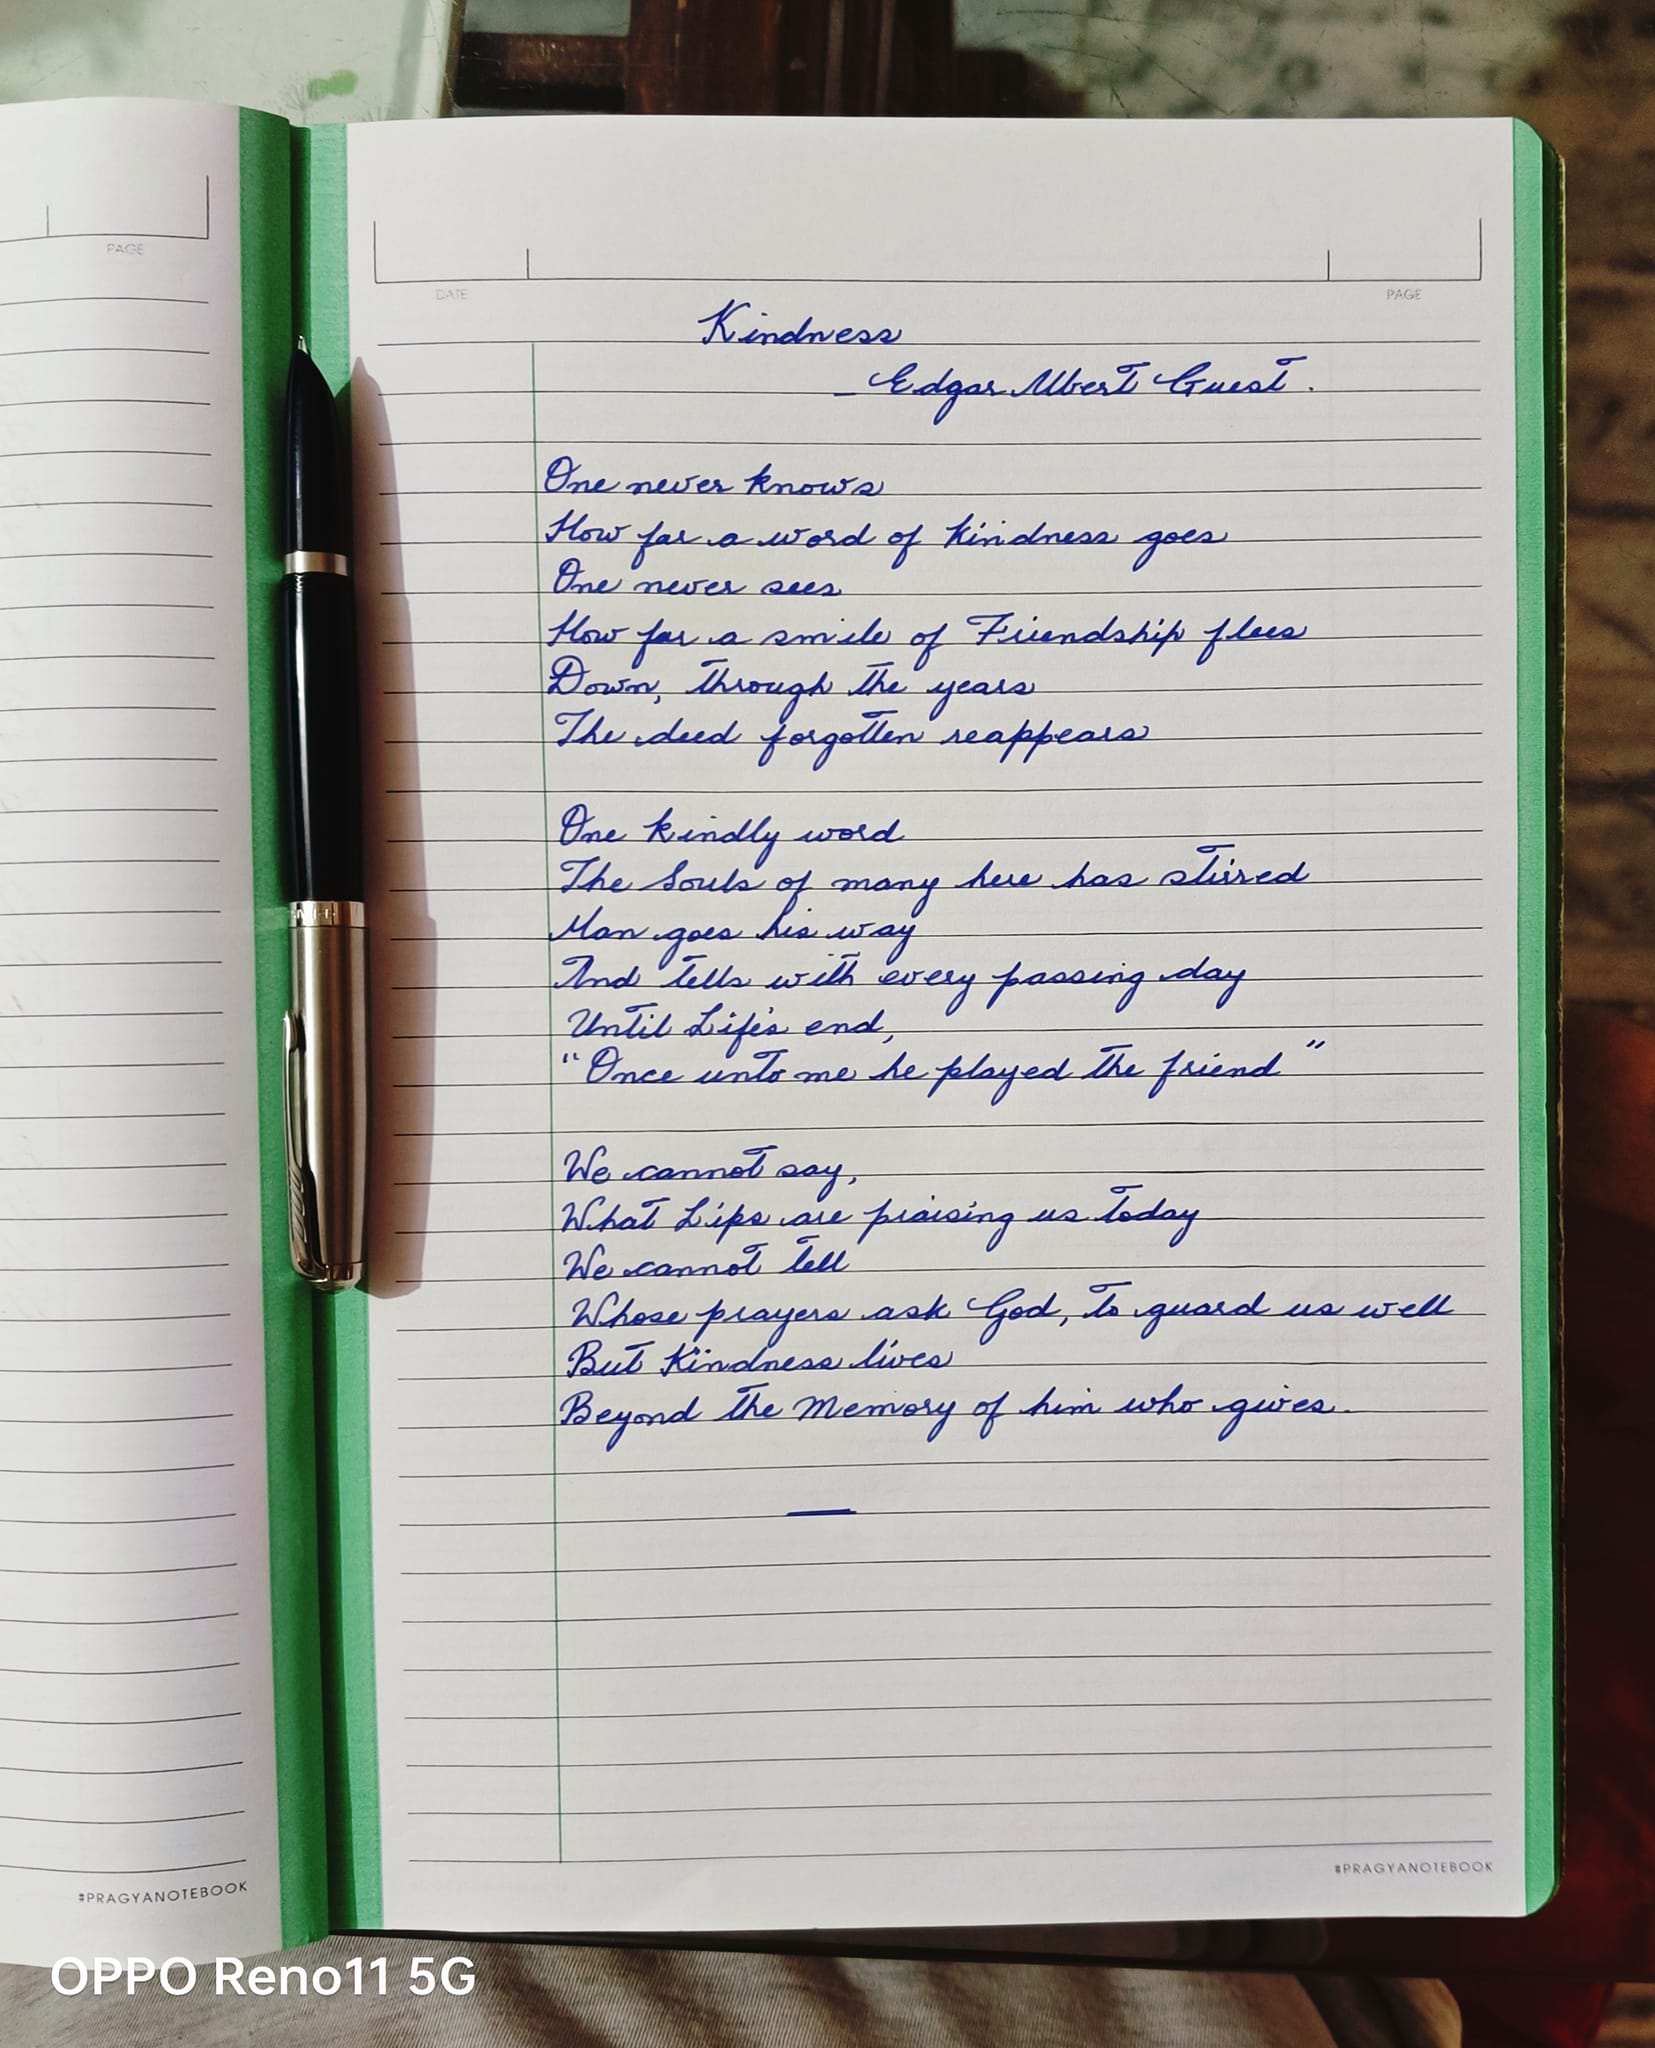 PAGE
DATE
PAGE
Kindness
_ Edgar Albert Guest.
One never knows
How far a word of kindness goes
One never sees
How far a smile of Friendship flees
Down, through the years
The deed forgotten reappears
One kindly word
The Souls of many here has stirred
Man goes his way
And tells with every passing day
Until Life's end,
"Once unto me he played the friend"
We cannot say,
What Lips are praising us today
We cannot tell
Whose prayers ask God, to guard us well
But Kindness lives
Beyond the Memory of him who gives.
#PRAGYANOTEBOOK
#PRAGYANOTEBOOK
OPPO Reno11 5G